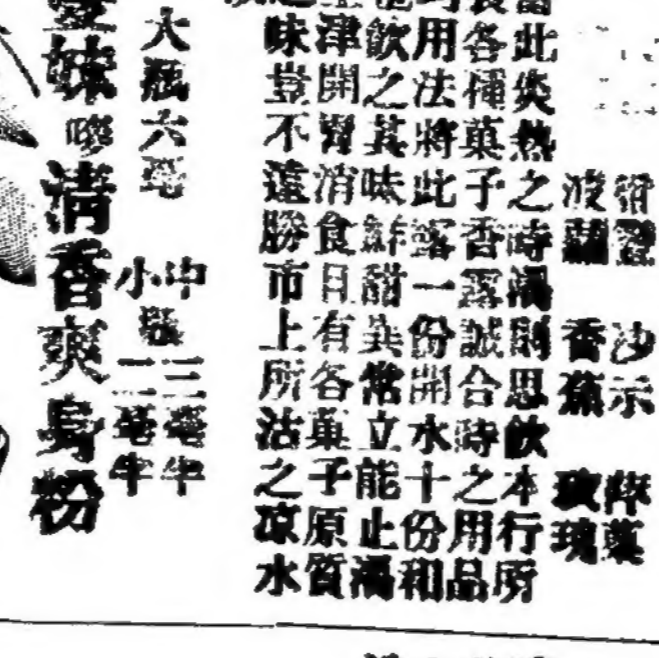 沙示
波蘿 香蕉 玫瑰
此炎熱之時渴則思飲本行所
各種菓子香露誠合時之用品
用法將此露一份開水十份和
飲之其味鮮甜異常立能止渴
津開胃消食且有各菓子原質
味豈不遠勝市上所沽之凉水
大瓶六毫
中號三毫半
小號二毫半
雙妹嘜清香爽身粉